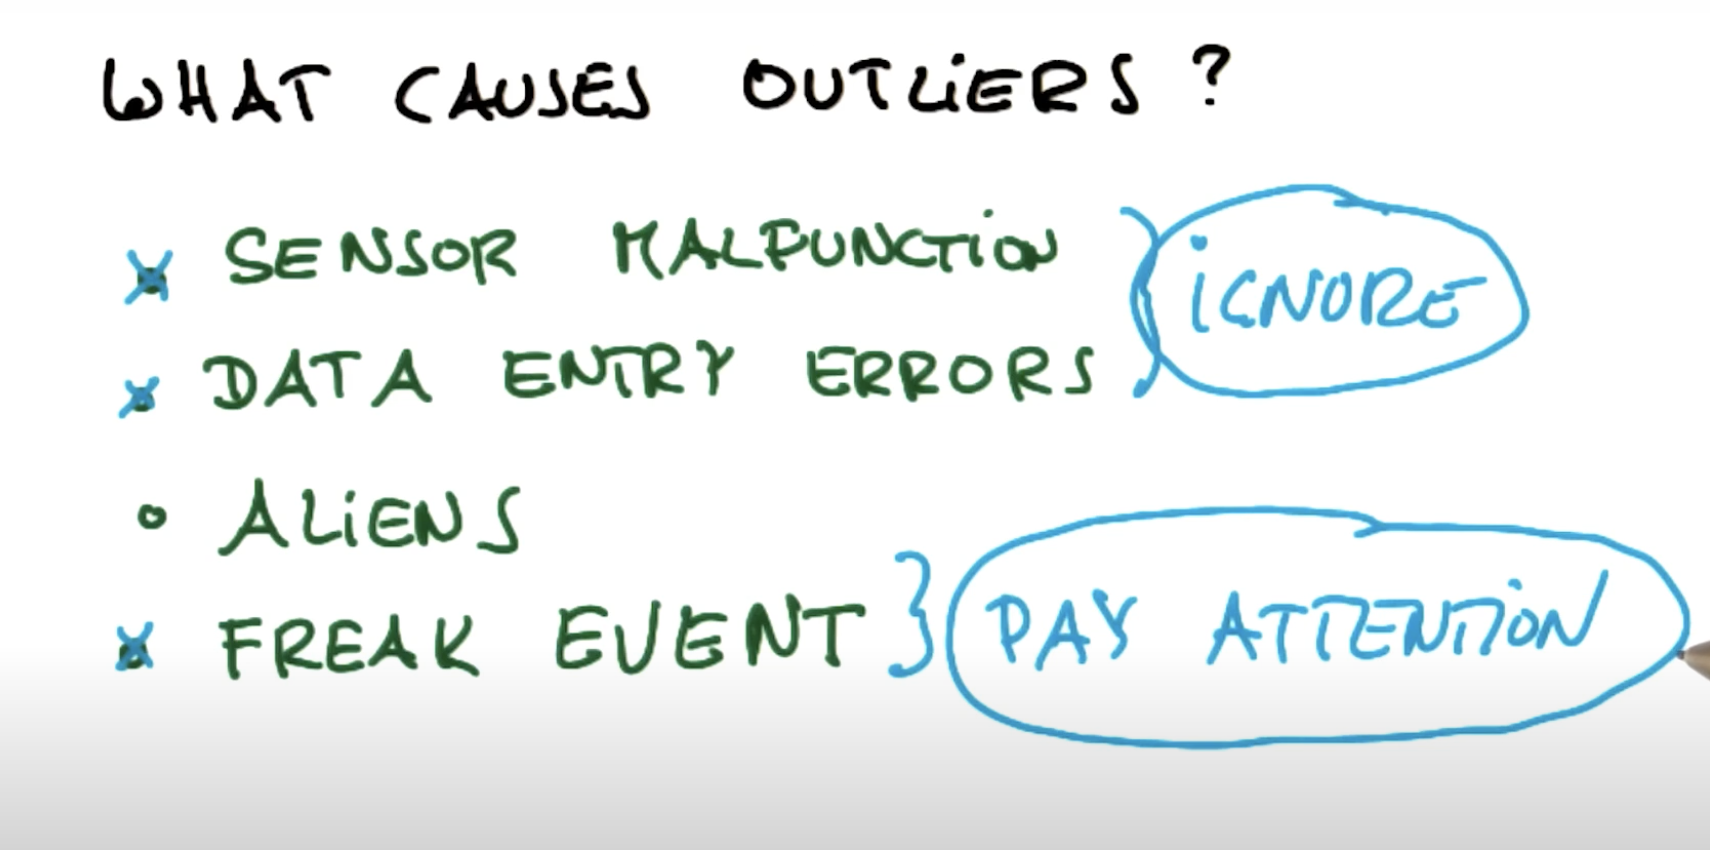 WHAT CAUSES OUTLiERS?
SENSOR MALFUNCTiON
iGNORE
DATA ENTRY ERRORS
ALiENS
FREAK EVENT } PAY ATTENTiON